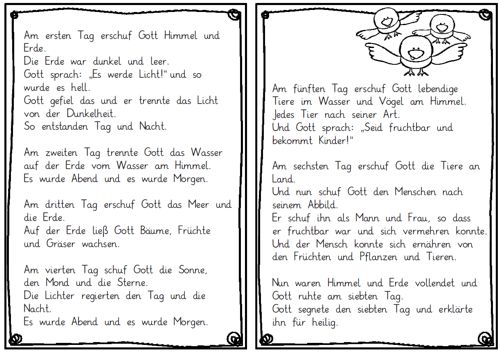 Am ersten Tag erschuf Gott Himmel und
Erde.
Die Erde war dunkel und leer.
Gott sprach: „Es werde Licht!" und so
wurde es hell.
Gott gefiel das und er trennte das Licht
von der Dunkelheit.
So entstanden Tag und Nacht.
Am zweiten Tag trennte Gott das Wasser
auf der Erde vom Wasser am Himmel.
Es wurde Abend und es wurde Morgen.
Am dritten Tag erschuf Gott das Meer und
die Erde.
Auf der Erde ließ Gott Bäume, Früchte
und Gräser wachsen.
Am vierten Tag schuf Gott die Sonne,
den Mond und die Sterne.
Die Lichter regierten den Tag und die
Nacht.
Es wurde Abend und es wurde Morgen.
Am fünften Tag erschuf Gott lebendige
Tiere im Wasser und Vögel am Himmel.
Jedes Tier nach seiner Art.
Und Gott sprach: „Seid fruchtbar und
bekommt Kinder!"
Am sechsten Tag erschuf Gott die Tiere an
Land.
Und nun schuf Gott den Menschen nach
seinem Abbild.
Er schuf ihn als Mann und Frau, so dass
er fruchtbar war und sich vermehren konnte.
Und der Mensch konnte sich ernähren von
den Früchten und Pflanzen und Tieren.
Nun waren Himmel und Erde vollendet und
Gott ruhte am siebten Tag.
Gott segnete den siebten Tag und erklärte
ihn für heilig.